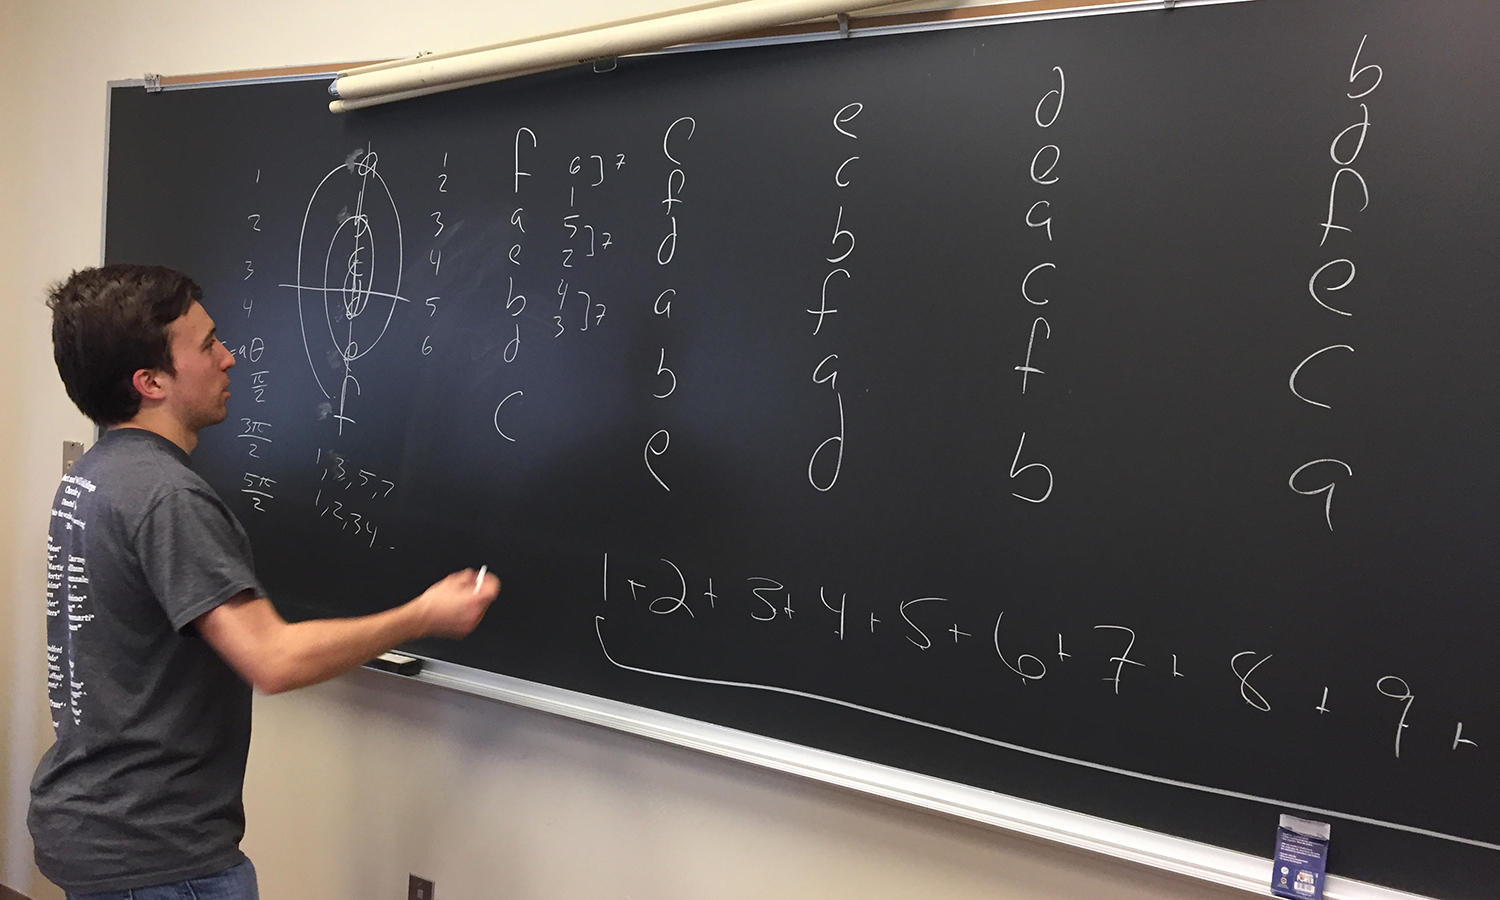 1
2
3
4
=aθ
π/2
3π/2
5π/2
a
b
c
d
e
f
1, 3, 5, 7
1, 2, 3 4, ..
1
2
3
4
5
6
f
a
e
b
d
c
6 ] 7
1
5 ] 7
2
4 ] 7
3
c
f
d
a
b
e
e
c
b
f
a
d
d
e
a
c
f
b
b
d
f
e
c
a
1 + 2 + 3 + 4 + 5 + 6 + 7 + 8 + 9 +